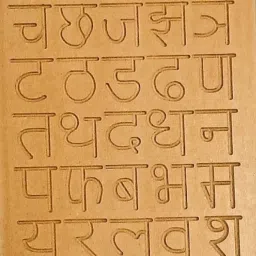 च छ ज झ ञ
ट ठ ड ढ ण
त थ द ध न
प फ ब भ म
य र ल व श